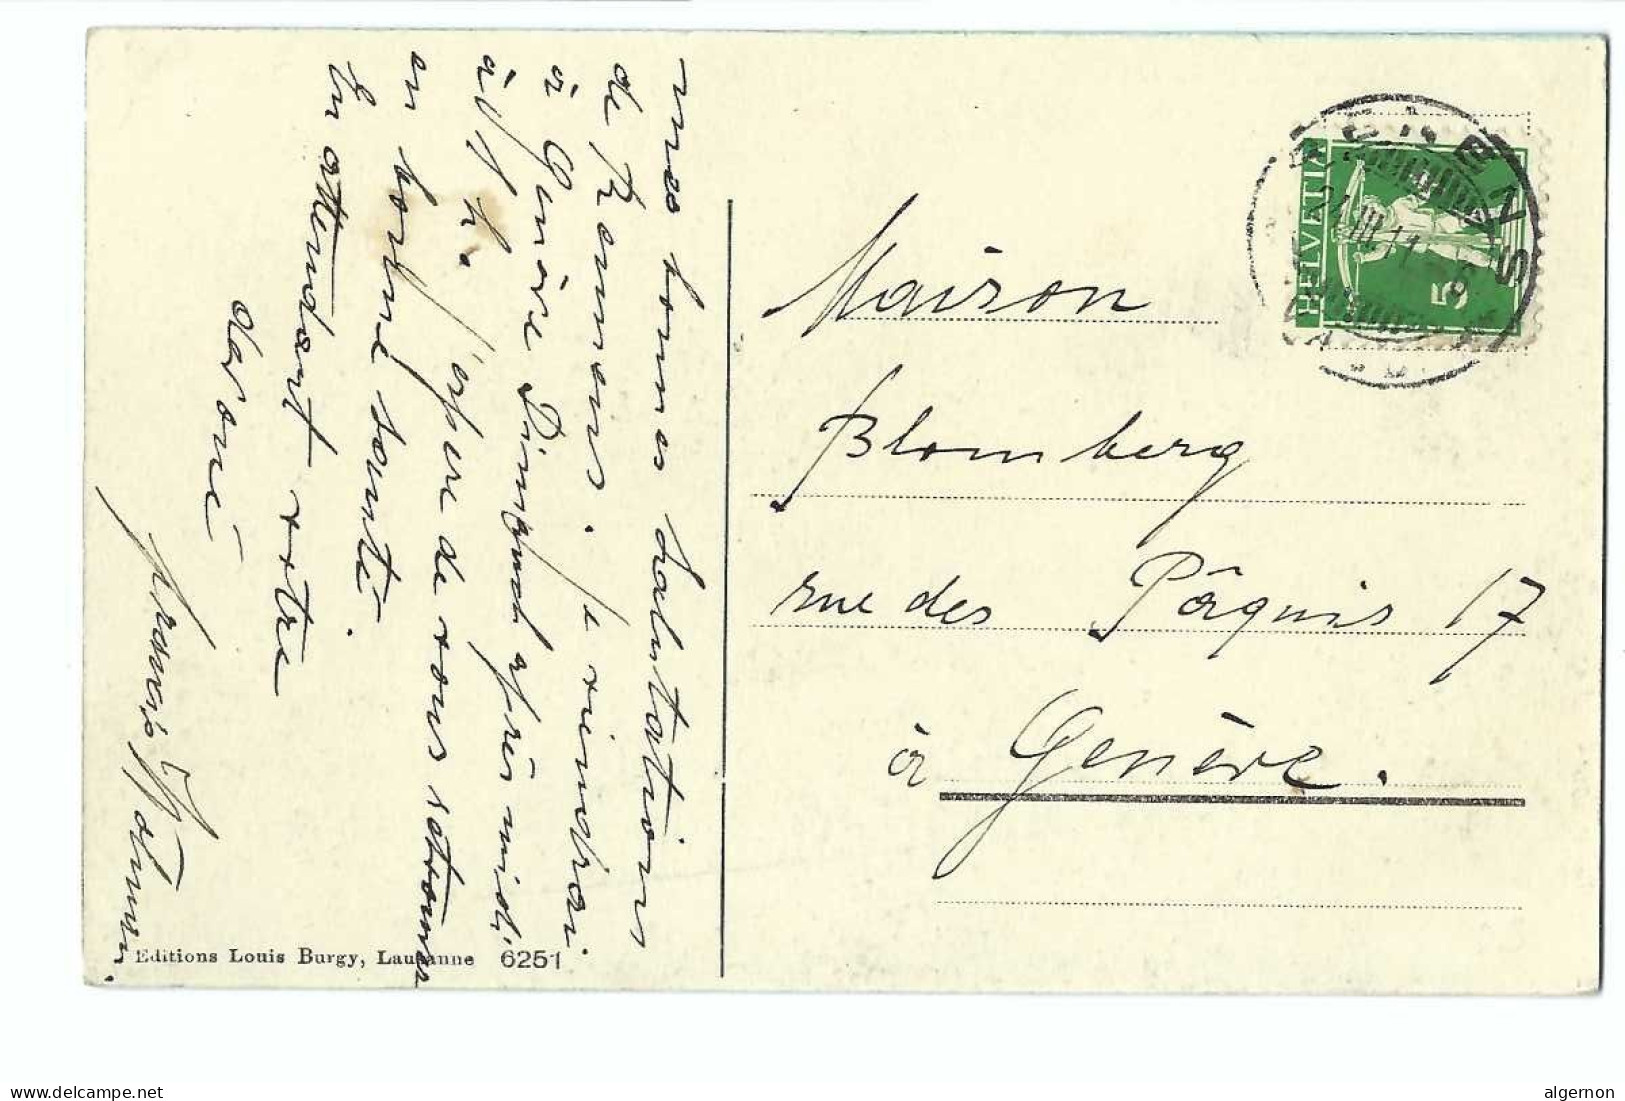 mes bonnes salutations
de Renens. je viendrai
à Genève Dimanche après midi,
à 1 h.
J'espère de vous retrouver
en bonne santé.
En attendant votre
dévoué
Maison
Blomberg
rue des Pâquis 17
à Genève.
HELVETIA
5
RENENS
III.11
Editions Louis Burgy, Lausanne 6251
www.delcampe.net
algernon